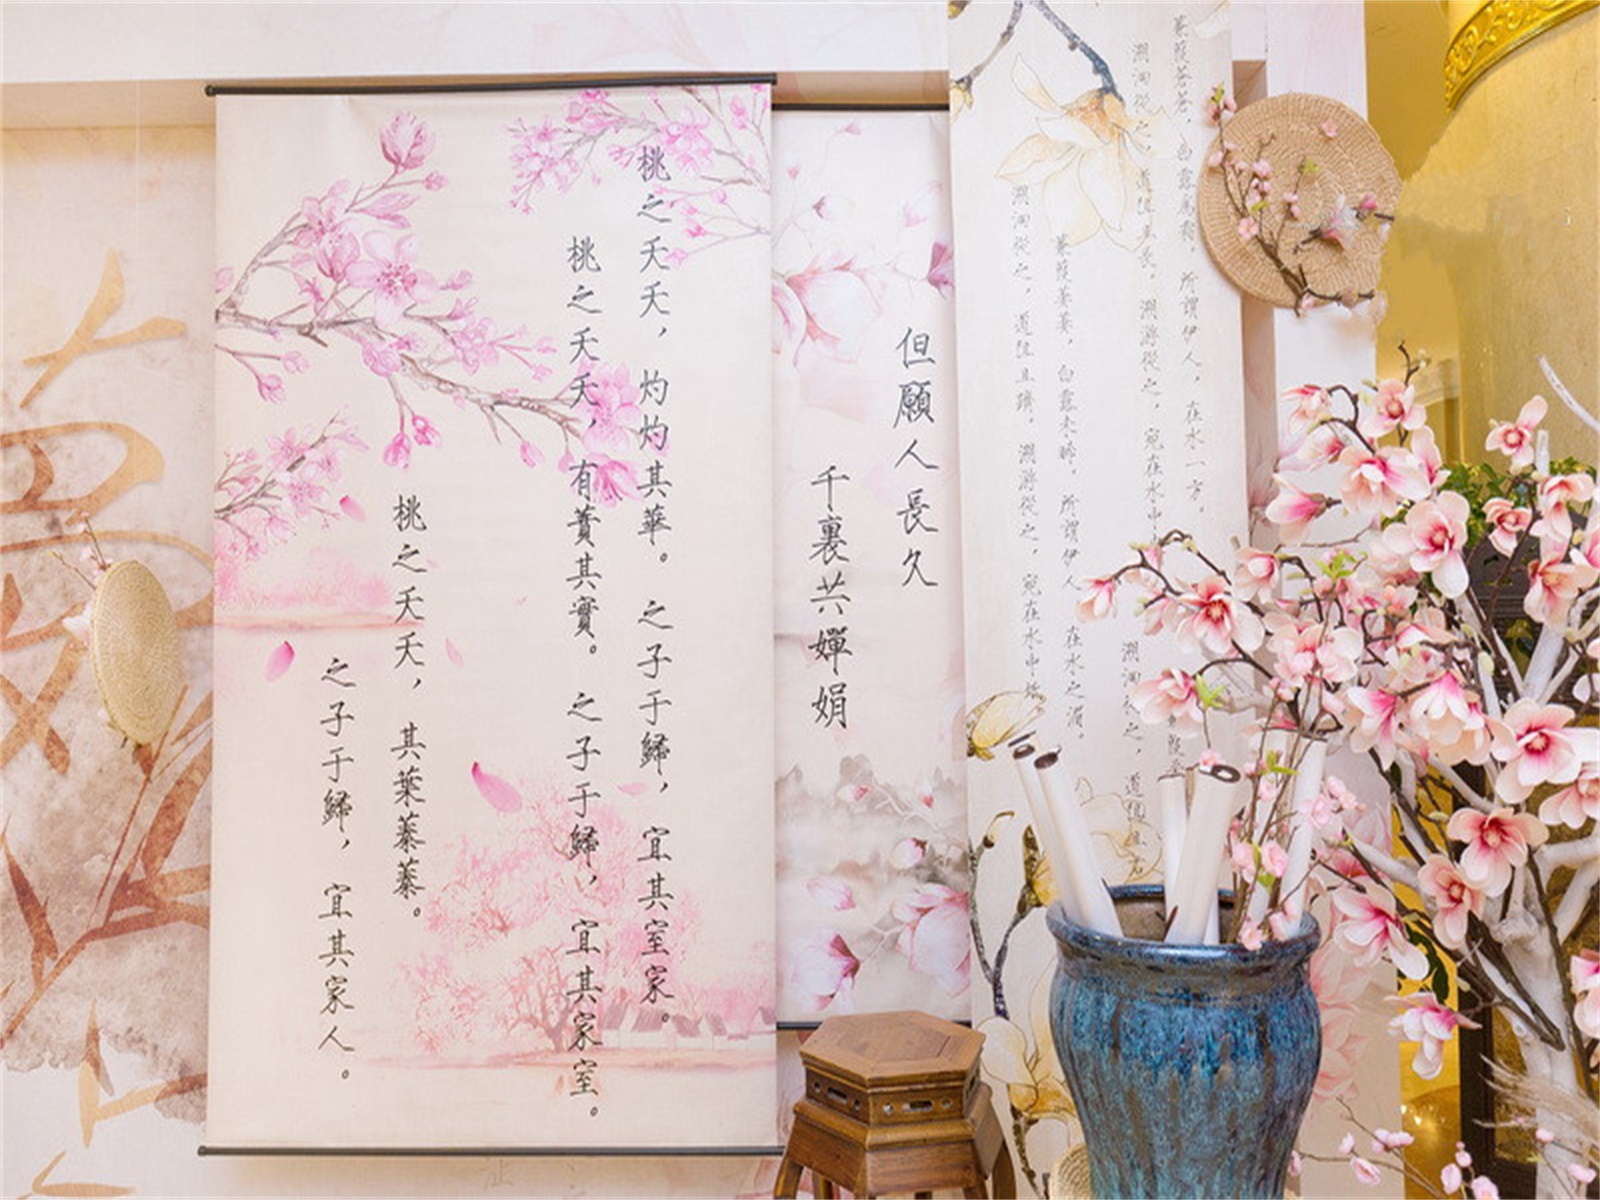 桃之夭夭，灼灼其華。之子于歸，宜其室家。
桃之夭夭，有蕡其實。之子于歸，宜其家室。
桃之夭夭，其葉蓁蓁。
之子于歸，宜其家人。
但願人長久
千裏共嬋娟
蒹葭蒼蒼，白露為霜，所謂伊人，在水一方。
溯洄從之，道阻且長。溯游從之，宛在水中
蒹葭萋萋，白露未晞。所謂伊人，在水之湄。
溯洄從之，道阻且躋。溯游從之，宛在水中坻
溯洄從之，道阻且右